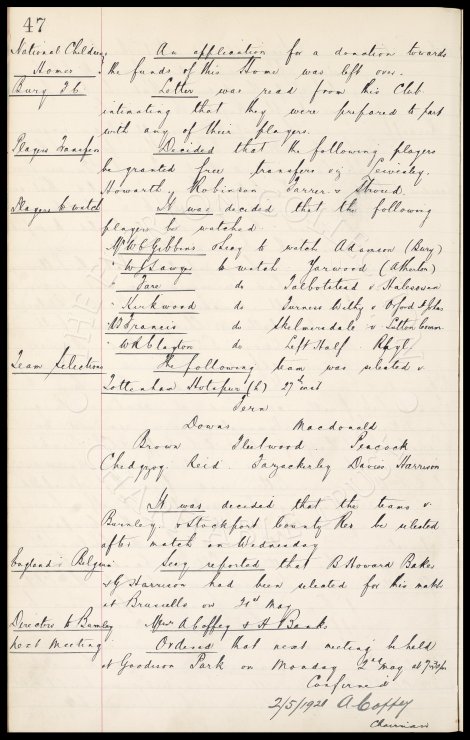 47
National Childrens An application for a donation towards
Homes the funds of this Home was left over.
Bury F.C. Letter was read from this Club
intimating that they were prepared to part
with any of their players.
Players Transfers Decided that the following players
be granted free transfers viz Lewisley,
Howarth, Robinson Farrer & Stroud.
Players to watch It was decided that the following
players be watched.
Mr W C Gibbins & Secy to watch Adamson (Bury)
" W J Sawyer to watch Yarwood (Atherton)
" Fare do Talbotstead v Halesowen
" Kirkwood do Furness Withy v
" Francis do Skelmersdale v
" W R Clayton do Left Half Rhyl.
Team Selections The following team was selected v
Tottenham Hotspur (h) 27th inst
Fern
Downs Macdonald
Brown Fleetwood. Peacock
Chedgzoy. Reid. Fazackerley Davies Harrison
It was decided that the teams v
Burnley. & Stockport County Res be selected
after match on Wednesday
England v Belgium Secy reported that B Howard Baker
& G Harrison had been selected for this match
at Brussells on 21st May
Directors to Burnley Messrs A Coffey & H Banks
Next Meeting Ordered that next meeting be held
at Goodison Park on Monday 2nd May at 7-30pm
Confirmed
2/5/1921 A Coffey
Chairman